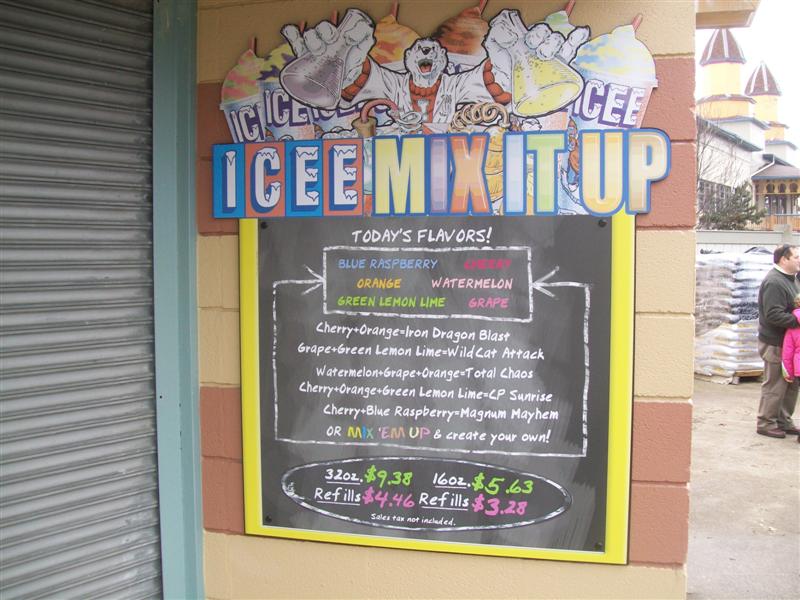 ICEE ICEE
ICEE MIX IT UP
TODAY'S FLAVORS!
BLUE RASPBERRY CHERRY
ORANGE WATERMELON
GREEN LEMON LIME GRAPE
Cherry+Orange=Iron Dragon Blast
Grape+Green Lemon Lime=WildCat Attack
Watermelon+Grape+Orange=Total Chaos
Cherry+Orange+Green Lemon Lime=CP Sunrise
Cherry+Blue Raspberry=Magnum Mayhem
OR MIX 'EM UP & create your own!
32oz. $9.38 16oz. $5.63
Refills $4.46 Refills $3.28
Sales tax not included.